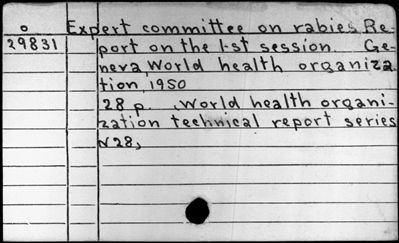 o Expert committee on rabies Re-
29831 port on the 1-st session. Ge-
neva, World health organiza-
tion, 1950
28 p. , World health organi-
zation technical report series
N 28,